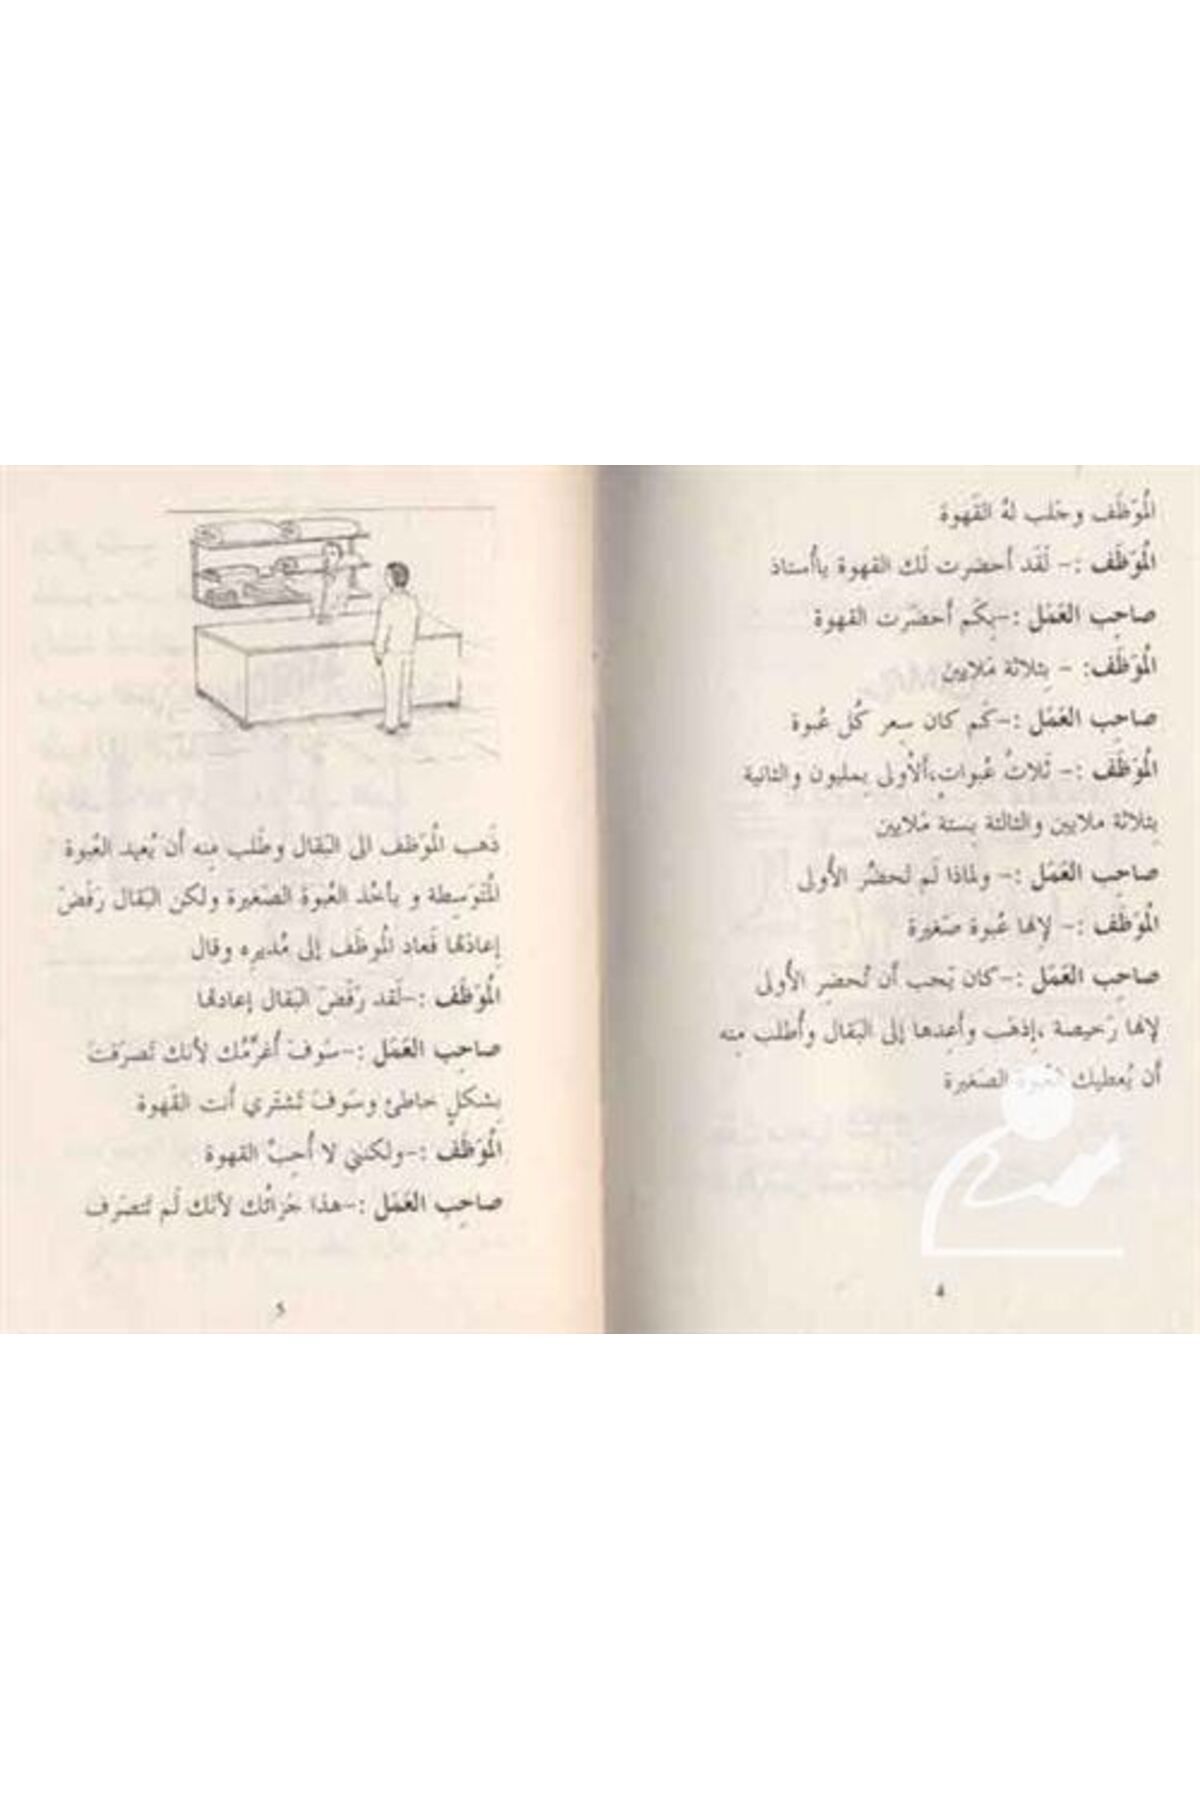 المُوَظَف وجَلب لهُ القَهوة
المُوَظَف :- لَقَد أحضرت لَك القهوة ياأُستاذ
صاحِب العَمَل :-بِكَم أحضَرت القهوة
المُوَظَف: - بِثلاثة مَلايين
صاحِب العَمَل :-كَم كان سِعر كُل عُبوة
المُوَظَف :- ثَلاثُ عُبواتٍ،ألأُولى بِمليون والثانية
بِثلاثة ملايين والثالثة بِستة مَلايين
صاحِب العَمَل :- ولماذا لَم تُحضُر الأولى
المُوَظَف :- لإنها عُبوة صَغيرة
صاحِب العَمَل :-كان يَحب أن تُحضر الأُولى
لإنها رَخيصة ،إذهَب وأَعِدها إلى البَقال وأُطلب مِنه
أن يُعطيك العُبوة الصَغيرة
4
ذَهب المُوَظف الى البَقال وطَلب مِنه أن يُعيد العُبوة
المُتَوَسِطة و يأخُذ العُبوة الصَغيرة ولكن البَقال رَفَضَ
إعادَتها فَعاد المُوظَف إلى مُديرِه وقال
المُوَظَف :-لَقد رَفَضَ البَقال إعادتها
صاحِب العَمَل :-سَوفَ أُغرِّمُك لأنك تَصرَفتَ
بِشكلٍ خاطئ وسَوفَ تَشتَري أنت القَهوة
المُوَظَف :-ولكنني لا أُحِبُ القهوة
صاحِب العَمَل :-هذا جَزائُك لأنَك لَم تَتصَرف
5